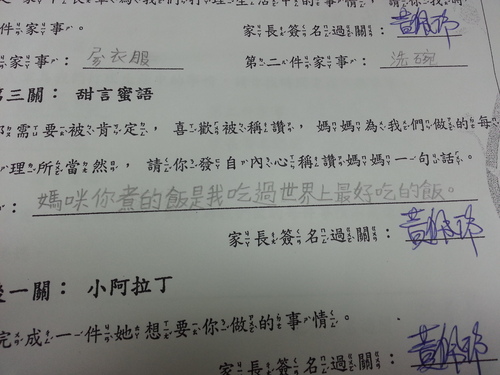 件家事。 家長簽名過關：
家事： 洗衣服 第二件家事： 洗碗
第三關： 甜言蜜語
需要被肯定，喜歡被稱讚，媽媽為我們做的每
理所當然，請你發自內心稱讚媽媽一句話。
： 媽咪你煮的飯是我吃過世界上最好吃的飯。
家長簽名過關：
一關： 小阿拉丁
完成一件她想要你做的事情。
家長簽名過關：